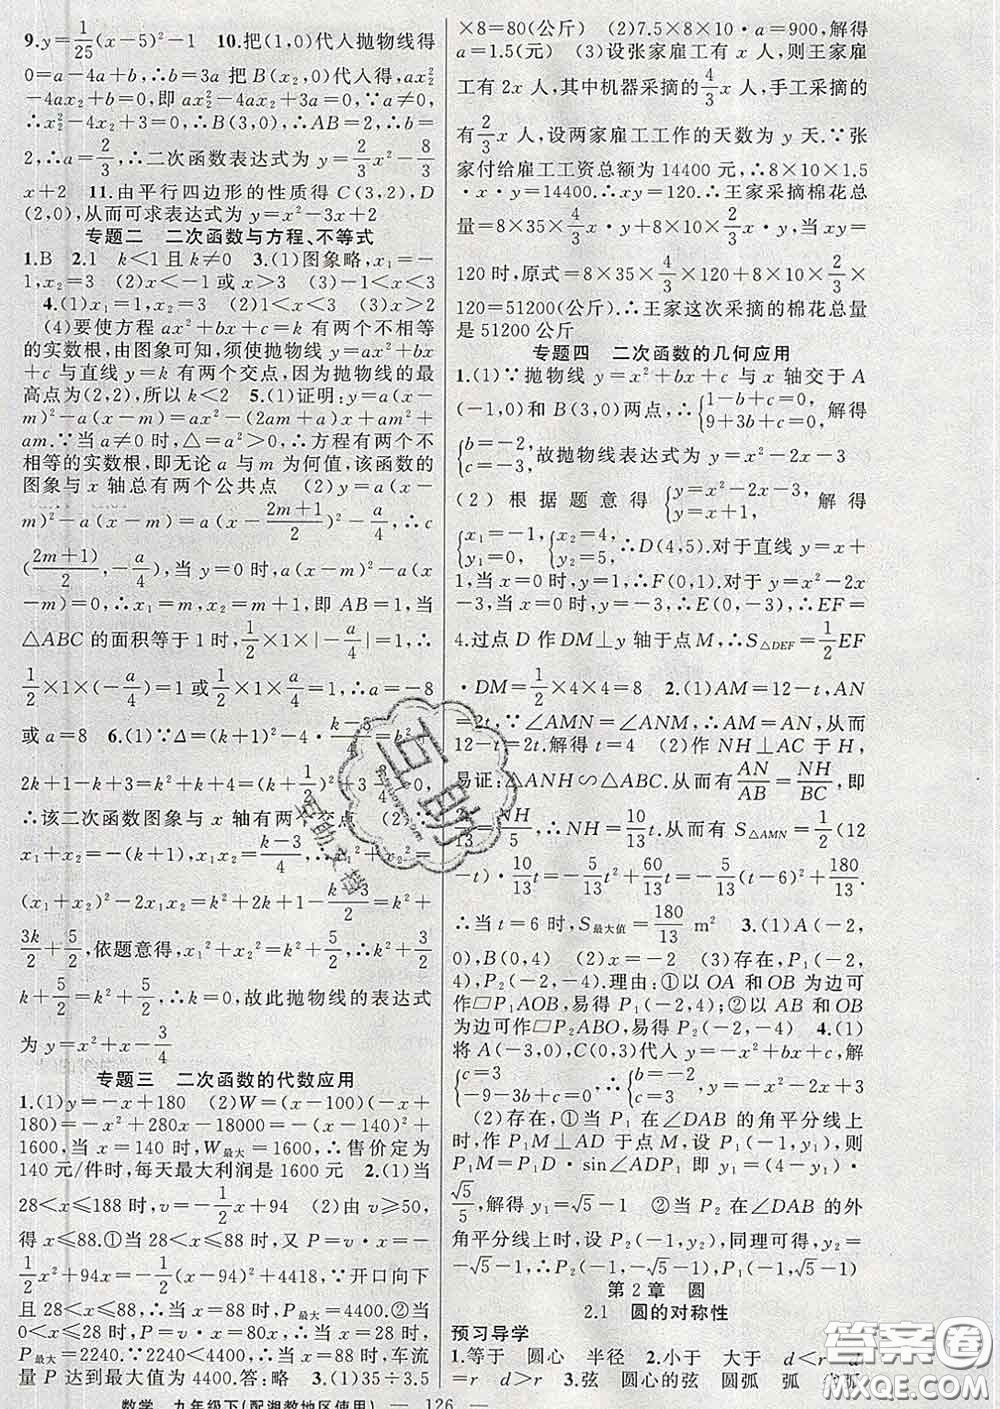 9.y=1/25(x-5)²-1　10.把(1,0)代入抛物线得
0=a-4a+b,∴b=3a 把B(x₂,0)代入得,ax₂²
-4ax₂+b=0,即 ax₂²-4ax₂+3a=0∵a≠0,
∴x₂²-4x₂+3=0,∴B(3,0),∴AB=2,∴b=
2,∴a=2/3,∴二次函数表达式为 y=2/3x²-8/3
x+2　11.由平行四边形的性质得C(3,2),D
(2,0),从而可求表达式为y=x²-3x+2
专题二　二次函数与方程、不等式
1.B　2.1　k<1且k≠0　3.(1)图象略,x₁=-
1,x₂=3　(2)x<-1或x>3　(3)-1<x<3
4.(1)x₁=1,x₂=3　(2)1<x<3　(3)x>2
(4)要使方程 ax²+bx+c=k 有两个不相等
的实数根,由图象可知,须使抛物线y=ax²+bx
+c与直线y=k有两个交点,因为抛物线的最
高点为(2,2),所以k<2　5.(1)证明:y=a(x-
m)²-a(x-m)=ax²-(2am+a)x+am²+
am.∵当a≠0时,△=a²>0,∴方程有两个不
相等的实数根,即无论a与m为何值,该函数的
图象与x轴总有两个公共点　(2)y=a(x-
m)²-a(x-m)=a(x-(2m+1)/2)²-a/4,∴c
((2m+1)/2,-a/4),当y=0时,a(x-m)²-a(x
-m)=0,∴x₁=m,x₂=m+1,即AB=1,当
△ABC的面积等于1时,1/2×1×|-a/4|=1,∴
1/2×1×(-a/4)=1或1/2×1×a/4=1,∴a=-8
或a=8　6.(1)∵Δ=(k+1)²-4·
2k+1-3k+3=k²+k+4=(k+1/2)²
∴该二次函数图象与x轴有两个交点　(2)∵
x₁+x₂=-(k+1),x₁x₂=(k-3)/4,∴
(x₁+x₂)²-2x₁x₂=k²+2k+1-(k-3)/2=k²+
3k/2+5/2,依题意得,x₁²+x₂²=k²+5/2,∴k²+3/2
k+5/2=k²+5/2,∴k=0,故此抛物线的表达式
为y=x²+x-3/4
专题三　二次函数的代数应用
1.(1)y=-x+180　(2)W=(x-100)(-x+
180)=-x²+280x-18000=-(x-140)²+
1600,当x=140时,W最大=1600,∴售价定为
140元/件时,每天最大利润是1600元　2.(1)当
28<x≤188时,v=-1/2x+94　(2)由v≥50,
得x≤88.①当28<x≤88时,又P=v·x=-
1/2x²+94x=-1/2(x-94)²+4418,∵开口向下
且28<x≤88,∴当x=88时,P最大=4400.②当
0<x≤28时,P=v·x=80x,∴当x=28时,
P最大=2240.∵2240<4400,∴当x=88时,车流
量P达到最大为4400.答:略　3.(1)35÷3.5
×8=80(公斤)　(2)7.5×8·a=900,解得
a=1.5(元)　(3)设张家雇工有x人,则王家雇
工有2x人,其中机器采摘的4/3x人,手工采摘的
有2/3x人,设两家雇工工作的天数为y天.∵张
家付给雇工工资总额为14400元,∴8×10×1.5
·x·y=14400.∴xy=120.∴王家采摘棉花总
量=8×35×4/3x·y+8×10×2/3x·y,当xy=
120时,原式=8×35×4/3×120+8×10×2/3×
120=51200(公斤).∴王家这次采摘的棉花总量
是51200公斤
专题四　二次函数的几何应用
1.(1)∵抛物线y=x²+bx+c与x轴交于A
(-1,0)和B(3,0)两点,∴{1-b+c=0, 9+3b+c=0,解得
{b=-2, c=-3,故抛物线表达式为y=x²-2x-3
(2)根据题意得{y=x²-2x-3, y=x+1,解得
{x₁=-1, y₁=0,{x₂=4, y₂=5,∴D(4,5).对于直线y=x+
1,当x=0时,y=1,∴F(0,1).对于y=x²-2x
-3,当x=0时,y=-3,∴E(0,-3),∴EF=
4.过点D作DM⊥y轴于点M,∴S△DEF=1/2EF
·DM=1/2×4×4=8　2.(1)AM=12-t,AN
=2t,∵∠AMN=∠ANM,∴AM=AN,从而
12-t=2t.解得t=4　(2)作NH⊥AC于H,
易证:△ANH∽△ABC.从而有AN/AB=NH/BC,即
2t/13=NH/5,∴NH=10/13t.从而有S△AMN=1/2(12
-t)·10/13t=-5/13t²+60/13t=-5/13(t-6)²+180/13.
∴当t=6时,S最大值=180/13 m²　3.(1)A(-2,
0),B(4,0)　(2)x=-2　(3)存在,P₁(-2,
4),P₂(-2,-4).理由:①以OA和OB为边可
作▱P₁AOB,易得P₁(-2,4);②以AB和OB
为边可作▱P₂ABO,易得P₂(-2,-4)　4.(1)
将A(-3,0),C(0,3)代入y=-x²+bx+c,解得
{c=3, -9-3b+c=0,∴{b=-2, c=3,∴y=-x²-2x+3
(2)存在,①当P₁在∠DAB的角平分线上
时,作P₁M⊥AD于点M,设P₁(-1,y₁),则
P₁M=P₁D·sin∠ADP₁ 即y₁=(4-y₁)·
√5/5,解得y₁=√5-1　②当P₂在∠DAB的外
角平分线上时,设P₂(-1,y₂),同理可得,y₂=
-√5-1,∴P₁(-1,√5-1),P₂(-1,-√5-1)
第2章　圆
2.1　圆的对称性
预习导学
1.等于　圆心　半径　2.小于　大于　d<r　d
=r　d>r　3.弦　圆心的弦　圆弧　弧
数学　九年级下(配湘教地区使用)　— 126 —
互助
互助文档
答案圈
MXQE.COM